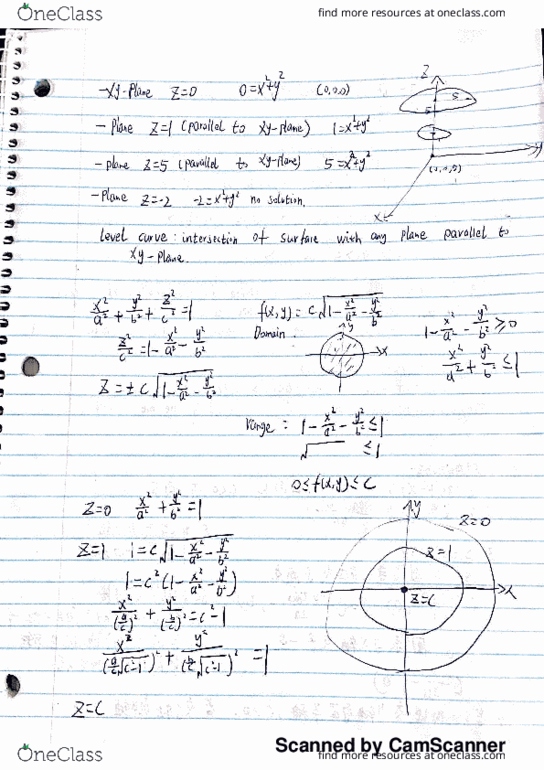 OneClass
find more resources at oneclass.com
-xy-plane z=0 0=x²+y² (0,0,0)
- Plane z=1 (parallel to xy-plane) 1=x²+y²
- plane z=5 (parallel to xy-plane) 5=x²+y²
- Plane z=-2 -2=x²+y² no solution.
z
5
5
y
(0,0,0)
x
level curve: intersection of surface with any plane parallel to
xy-plane.
x²/a² + y²/b² + z²/c² = 1
z²/c² = 1 - x²/a² - y²/b²
z = ±c√(1 - x²/a² - y²/b²)
f(x,y) = c√(1 - x²/a² - y²/b²)
Domain
y
x
1 - x²/a² - y²/b² ≥ 0
x²/a² + y²/b² ≤ 1
range: 1 - x²/a² - y²/b² ≤ 1
√ ≤ 1
0 ≤ f(x,y) ≤ c
z=0 x²/a² + y²/b² = 1
z=1 1 = c√(1 - x²/a² - y²/b²)
1 = c²(1 - x²/a² - y²/b²)
x²/(a/c)² + y²/(b/c)² = c²-1
x²/(a/c √(c²-1))² + y²/(b/c √(c²-1))² = 1
z=c
y
z=0
z=1
z=c
x
Scanned by CamScanner
OneClass
find more resources at oneclass.com